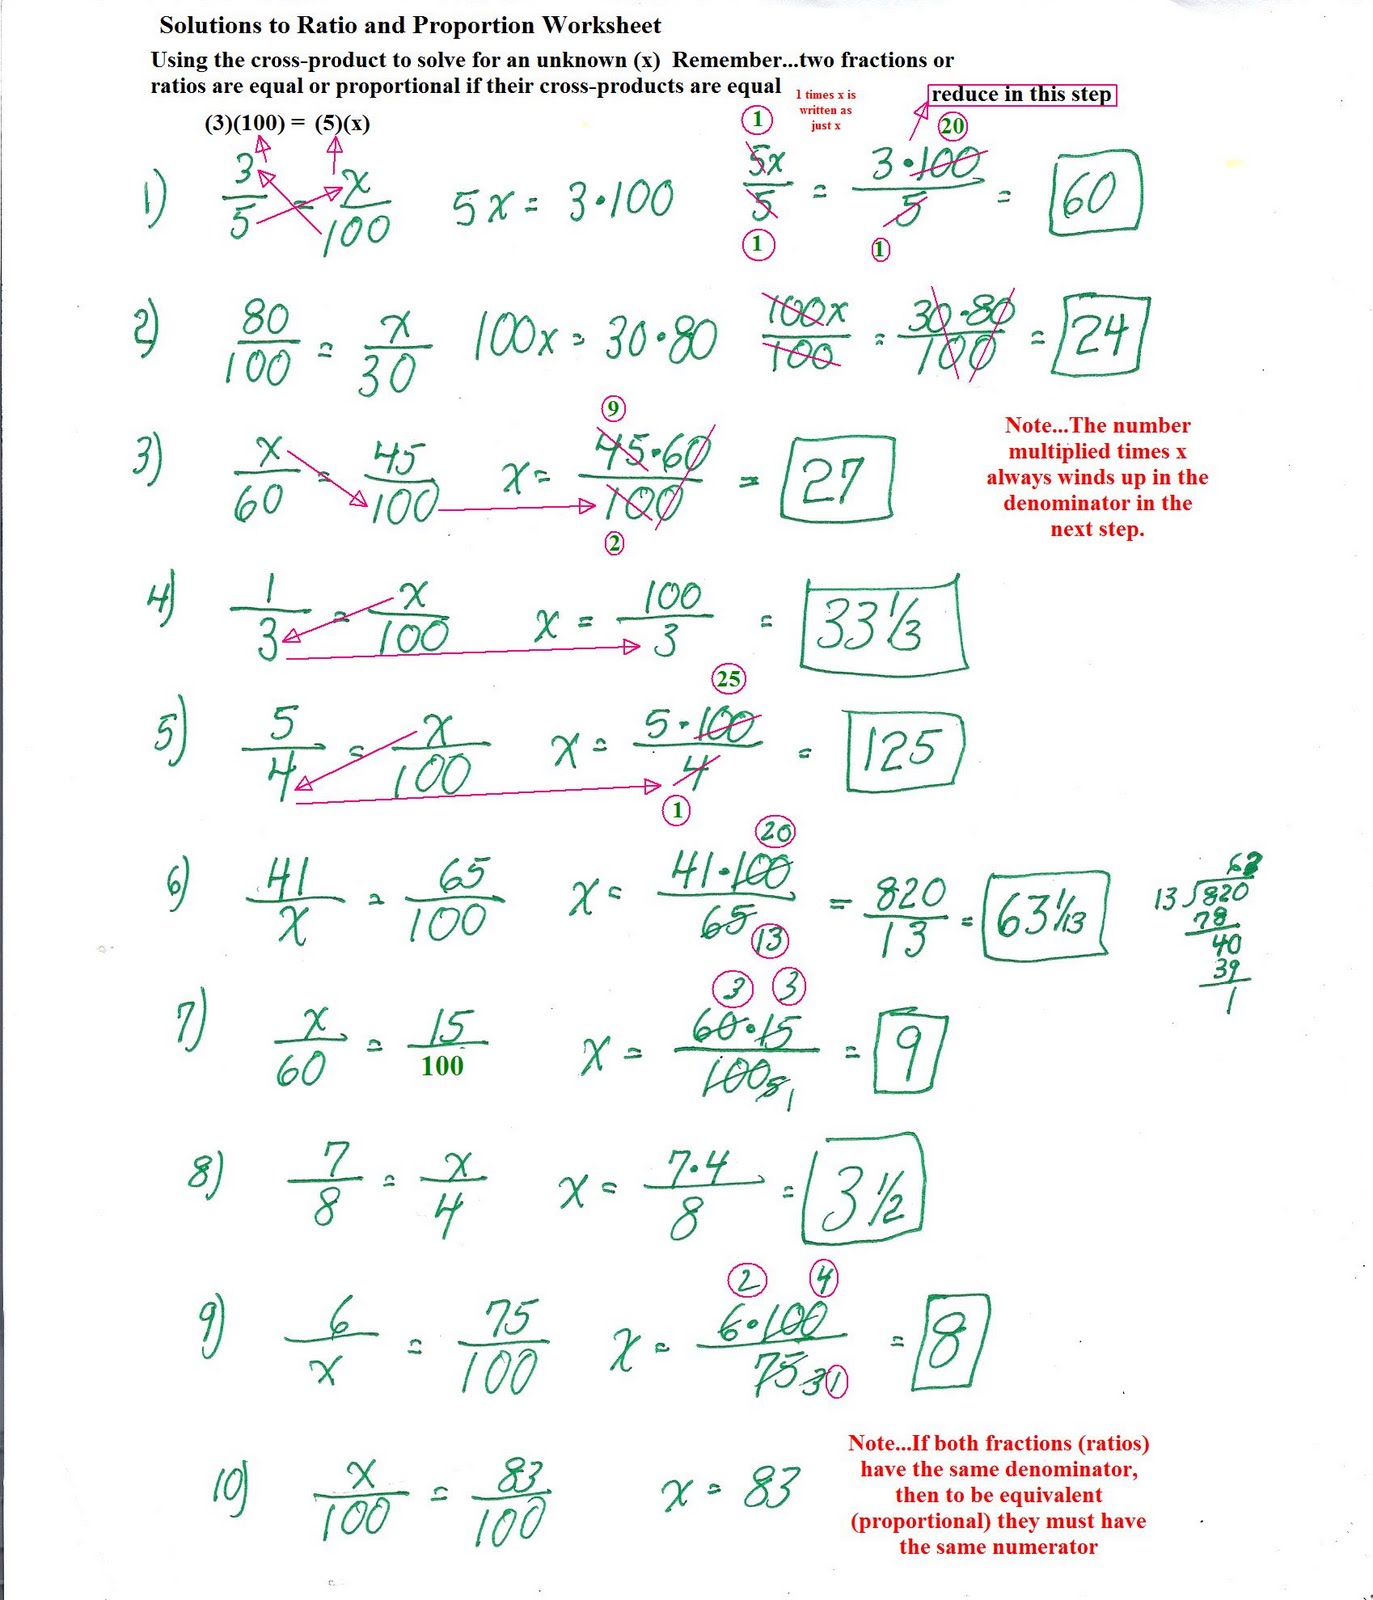 Solutions to Ratio and Proportion Worksheet
Using the cross-product to solve for an unknown (x)  Remember...two fractions or
ratios are equal or proportional if their cross-products are equal
1 times x is
written as
just x
reduce in this step
(3)(100) = (5)(x)
1) 3/5 = x/100  5x = 3·100  5x/5 = 3·100/5 = 60
1 20
1 1
2) 80/100 = x/30  100x = 30·80  100x/100 = 30·80/100 = 24
9
3) x/60 = 45/100  x = 45·60/100 = 27
2
Note...The number
multiplied times x
always winds up in the
denominator in the
next step.
4) 1/3 = x/100  x = 100/3 = 33 1/3
25
5) 5/4 = x/100  x = 5·100/4 = 125
1
20
6) 41/x = 65/100  x = 41·100/65 = 820/13 = 63 1/13
13
63
13 820
78
40
39
1
3 3
7) x/60 = 15/100  x = 60·15/100 = 9
5 1
8) 7/8 = x/4  x = 7·4/8 = 3 1/2
2 4
9) 6/x = 75/100  x = 6·100/75 = 8
3 1
10) x/100 = 83/100  x = 83
Note...If both fractions (ratios)
have the same denominator,
then to be equivalent
(proportional) they must have
the same numerator